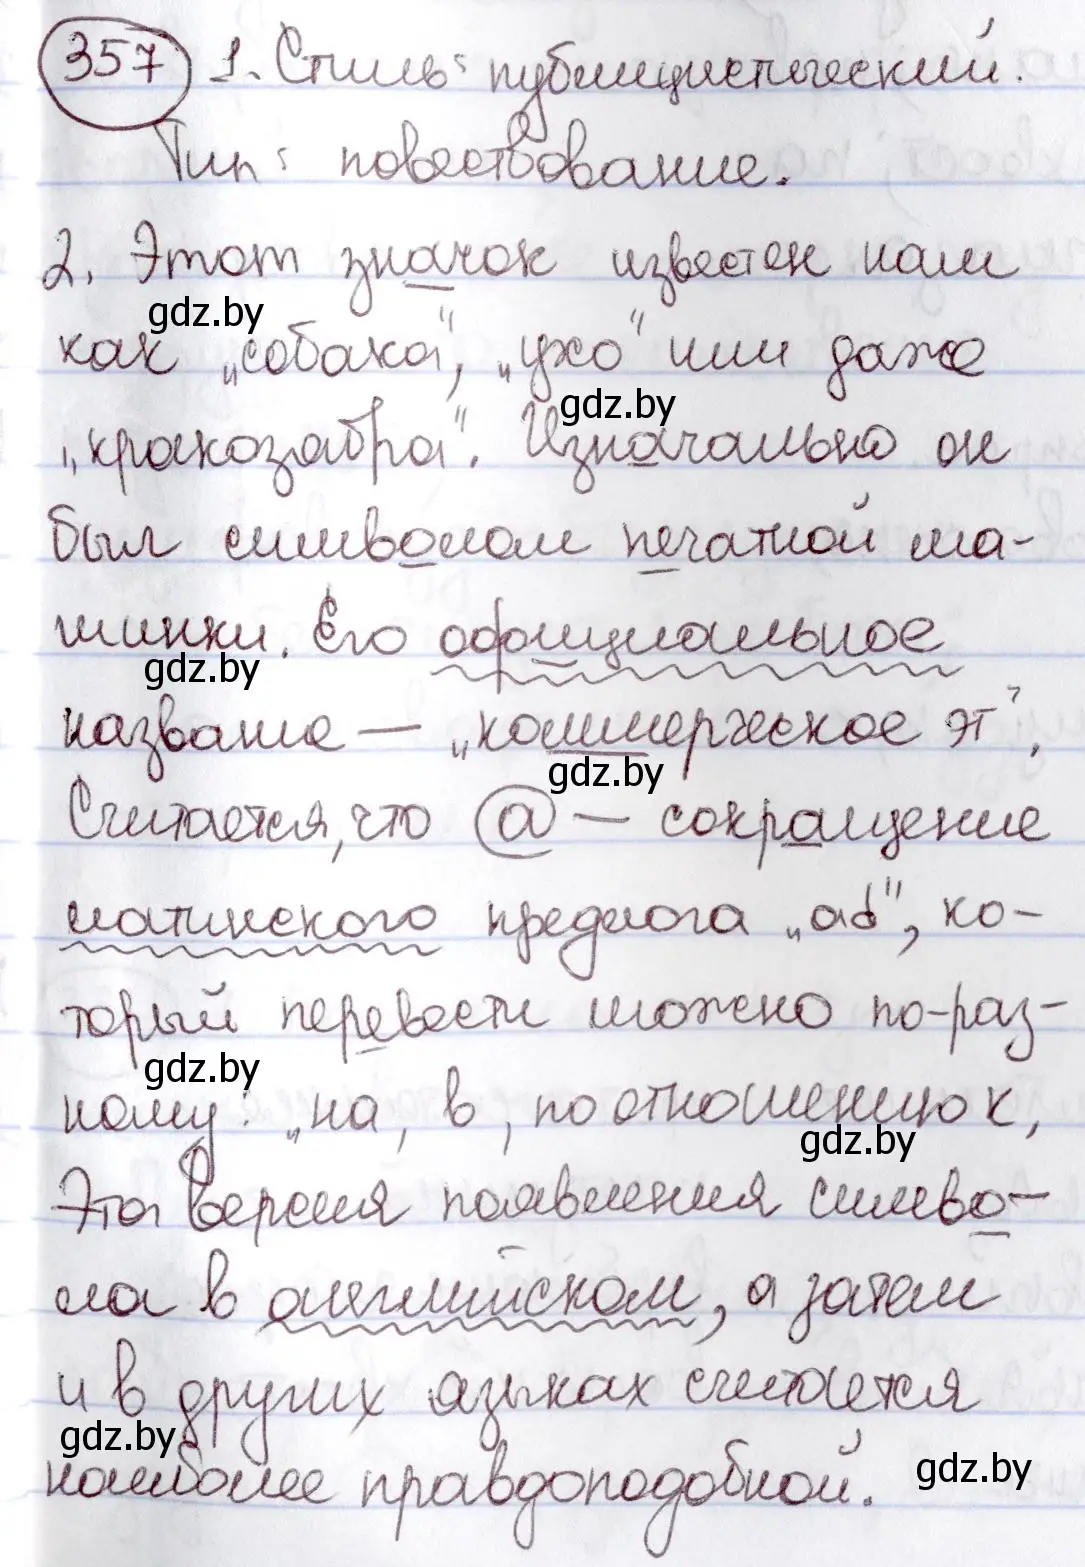 357 1. Стиль: публицистический.
Тип: повествование.
2. Этот значок известен нам
gdz.by
как „собака", „ухо" или даже
gdz.by
„кракозабра". Изначально он
был символом печатной ма-
шинки. Его официальное
gdz.by
название — „коммерческое эт".
gdz.by
Считается, что @ — сокращение
латинского предлога „ad", ко-
торый перевести можно по-раз-
gdz.by
ному: „на, в, по отношению к,
gdz.by
Эта версия появления симво-
ла в английском, а затем
и в других языках считается
gdz.by
наиболее правдоподобной.
gdz.by